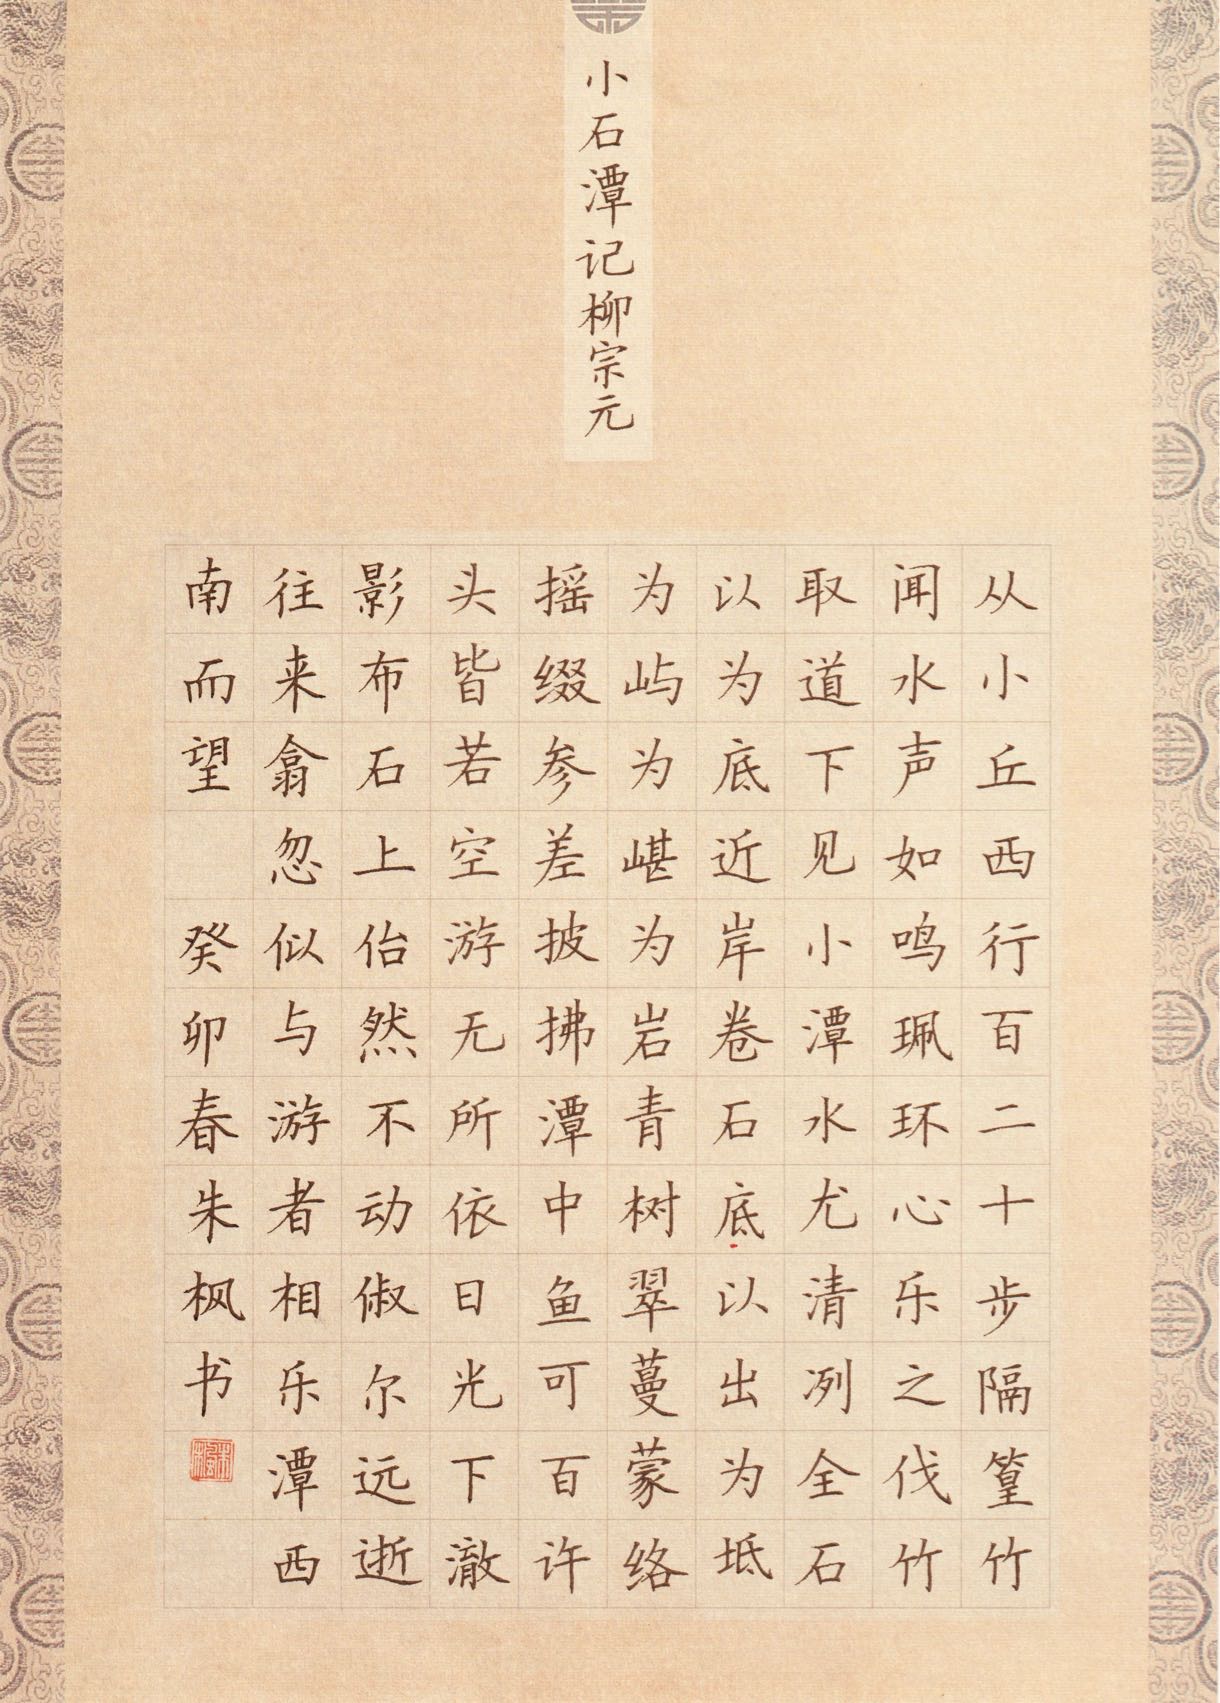 小石潭记柳宗元
从小丘西行百二十步隔篁竹
闻水声如鸣珮环心乐之伐竹
取道下见小潭水尤清冽全石
以为底近岸卷石底以出为坻
为屿为嵁为岩青树翠蔓蒙络
摇缀参差披拂潭中鱼可百许
头皆若空游无所依日光下澈
影布石上佁然不动俶尔远逝
往来翕忽似与游者相乐潭西
南而望 癸卯春朱枫书
朱枫